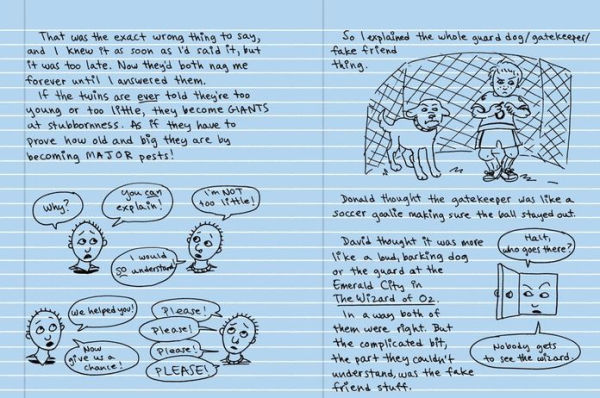 That was the exact wrong thing to say,
and I knew it as soon as I'd said it, but
it was too late. Now they'd both nag me
forever until I answered them.
If the twins are ever told they're too
young or too little, they become GIANTS
at stubbornness. As if they have to
prove how old and big they are by
becoming MAJOR pests!
Why?
You can
explain!
I'm NOT
too little!
I would
SO understand!
We helped you!
Now
give us a
chance!
Please!
Please!
Please!
PLEASE!
So I explained the whole guard dog/gatekeeper/
fake friend
thing.
Donald thought the gatekeeper was like a
soccer goalie making sure the ball stayed out.
David thought it was more
like a loud, barking dog
or the guard at the
Emerald City in
The Wizard of Oz.
In a way both of
them were right. But
the complicated bit,
the part they couldn't
understand, was the fake
friend stuff.
Halt,
who goes there?
Nobody gets
to see the wizard.